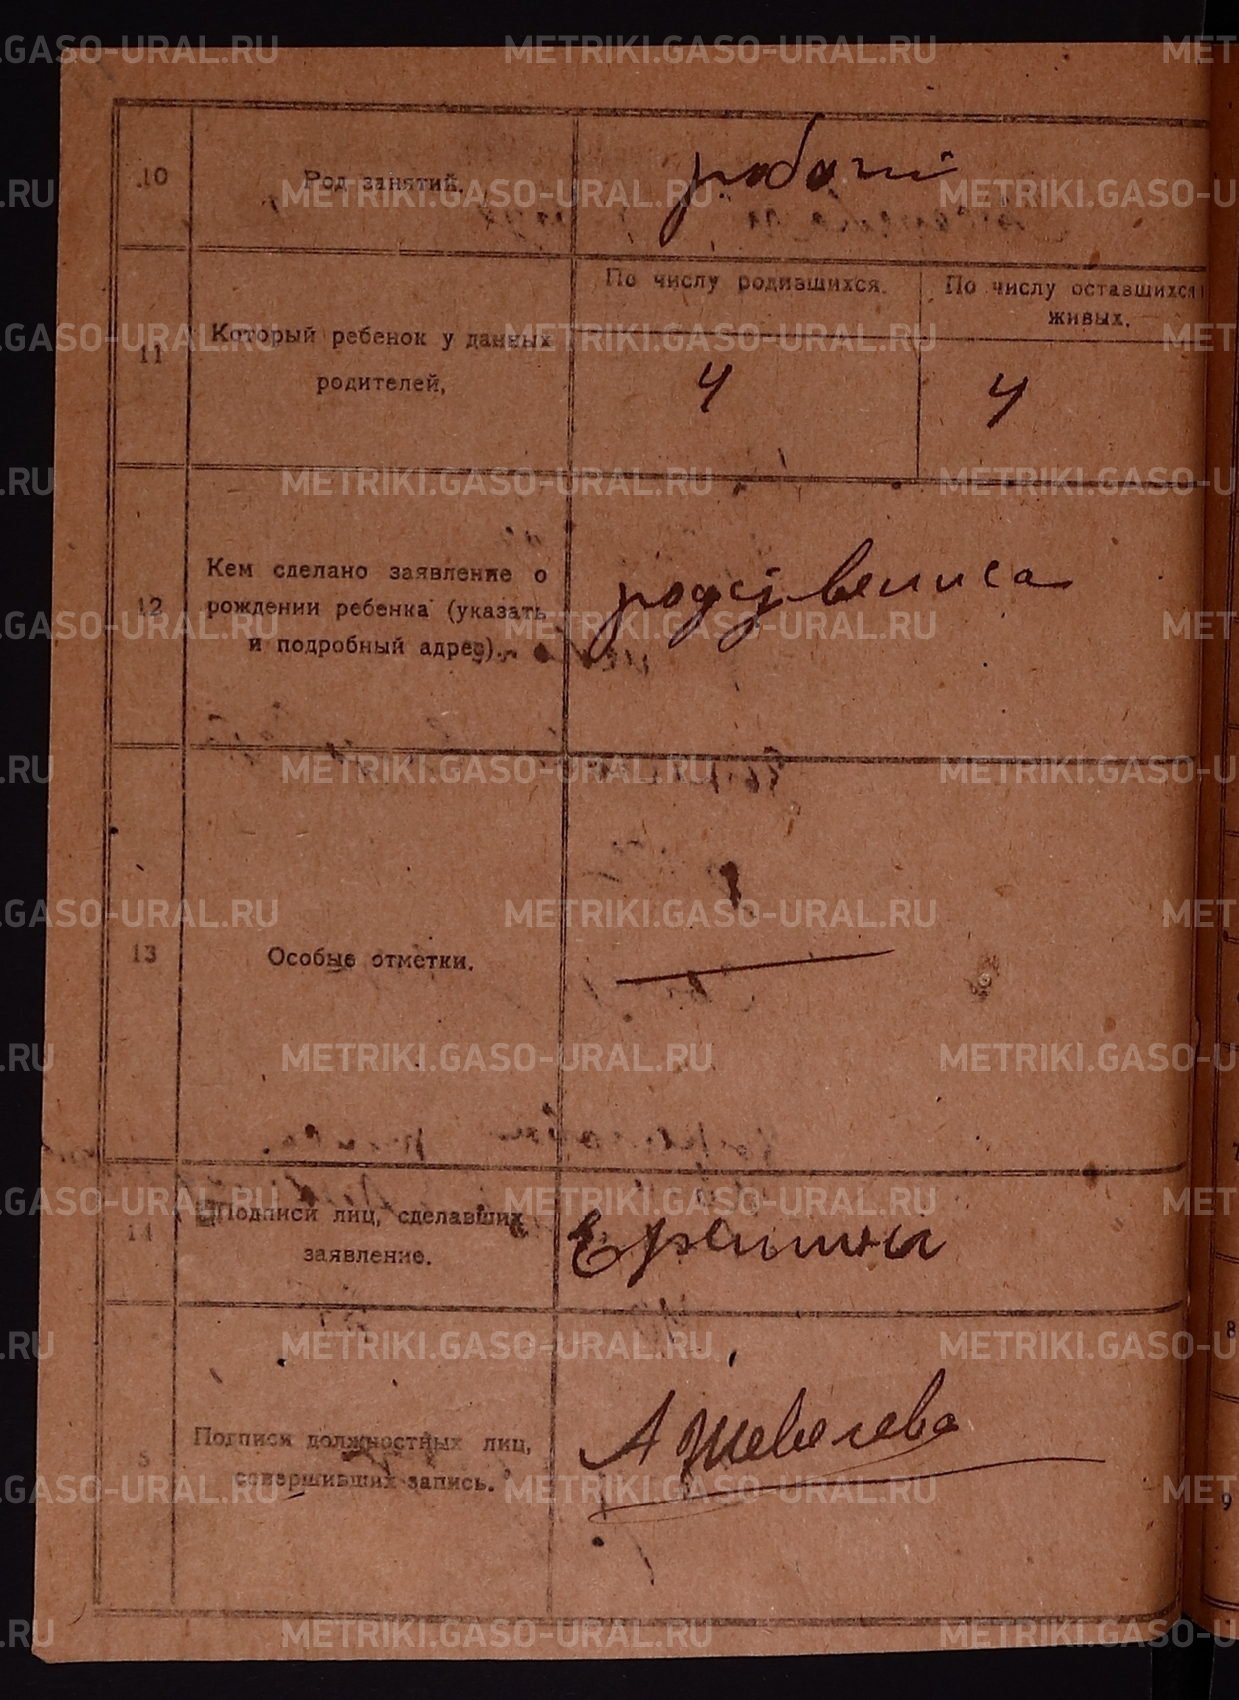 10
Род занятий.
рабочий
11
Который ребенок у данных
родителей,
По числу родившихся.
По числу оставшихся
живых.
4
4
12
Кем сделано заявление о
рождении ребенка (указать
и подробный адрес).
родственица
13
Особые отметки.
14
Подписи лиц, сделавших
заявление.
5
Подписи должностных лиц,
совершивших запись.
А Шевелева
8
9
METRIKI.GASO-URAL.RU